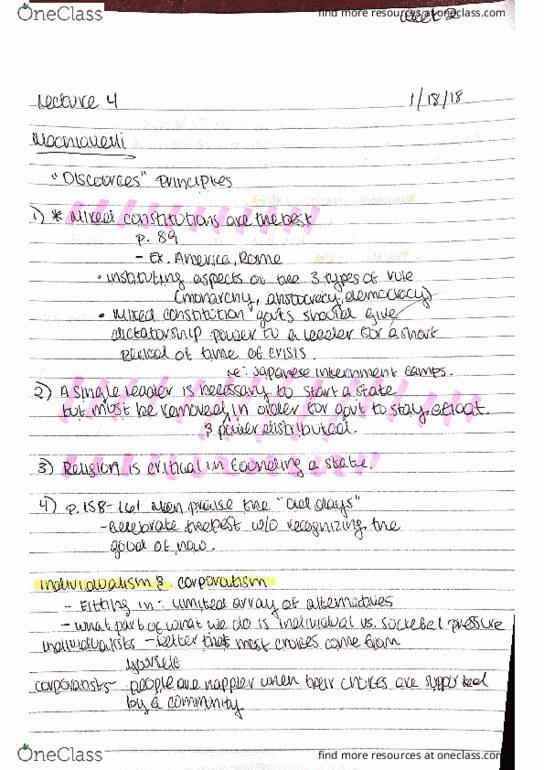 OneClass
find more resources at oneclass.com
Lecture 4 1/18/18
Machiavelli
"Discources" Principles
1) * Mixed constitutions are the best
p. 89
- Ex. America, Rome
• instituting aspects of the 3 types of rule
(monarchy, aristocracy, democracy)
• "Mixed constitution" gov'ts should give
dictatorship power to a leader for a short
period of time of crisis.
Japanese internment camps.
2) A single leader is necessary to start a state
but must be removed, in order for govt to stay afloat
& power distributed.
3) Religion is critical in founding a state.
4) p.158-161 Men praise the "old days"
- celebrate the best w/o recognizing the
good of now.
individualism & corporatism
- Fitting in: limited array of alternatives
- what part of what we do is individual vs. societal pressure
individualists - better that most choices come from
yourself
corporatists - people are happier when their choices are supported
by a community
OneClass
find more resources at oneclass.com